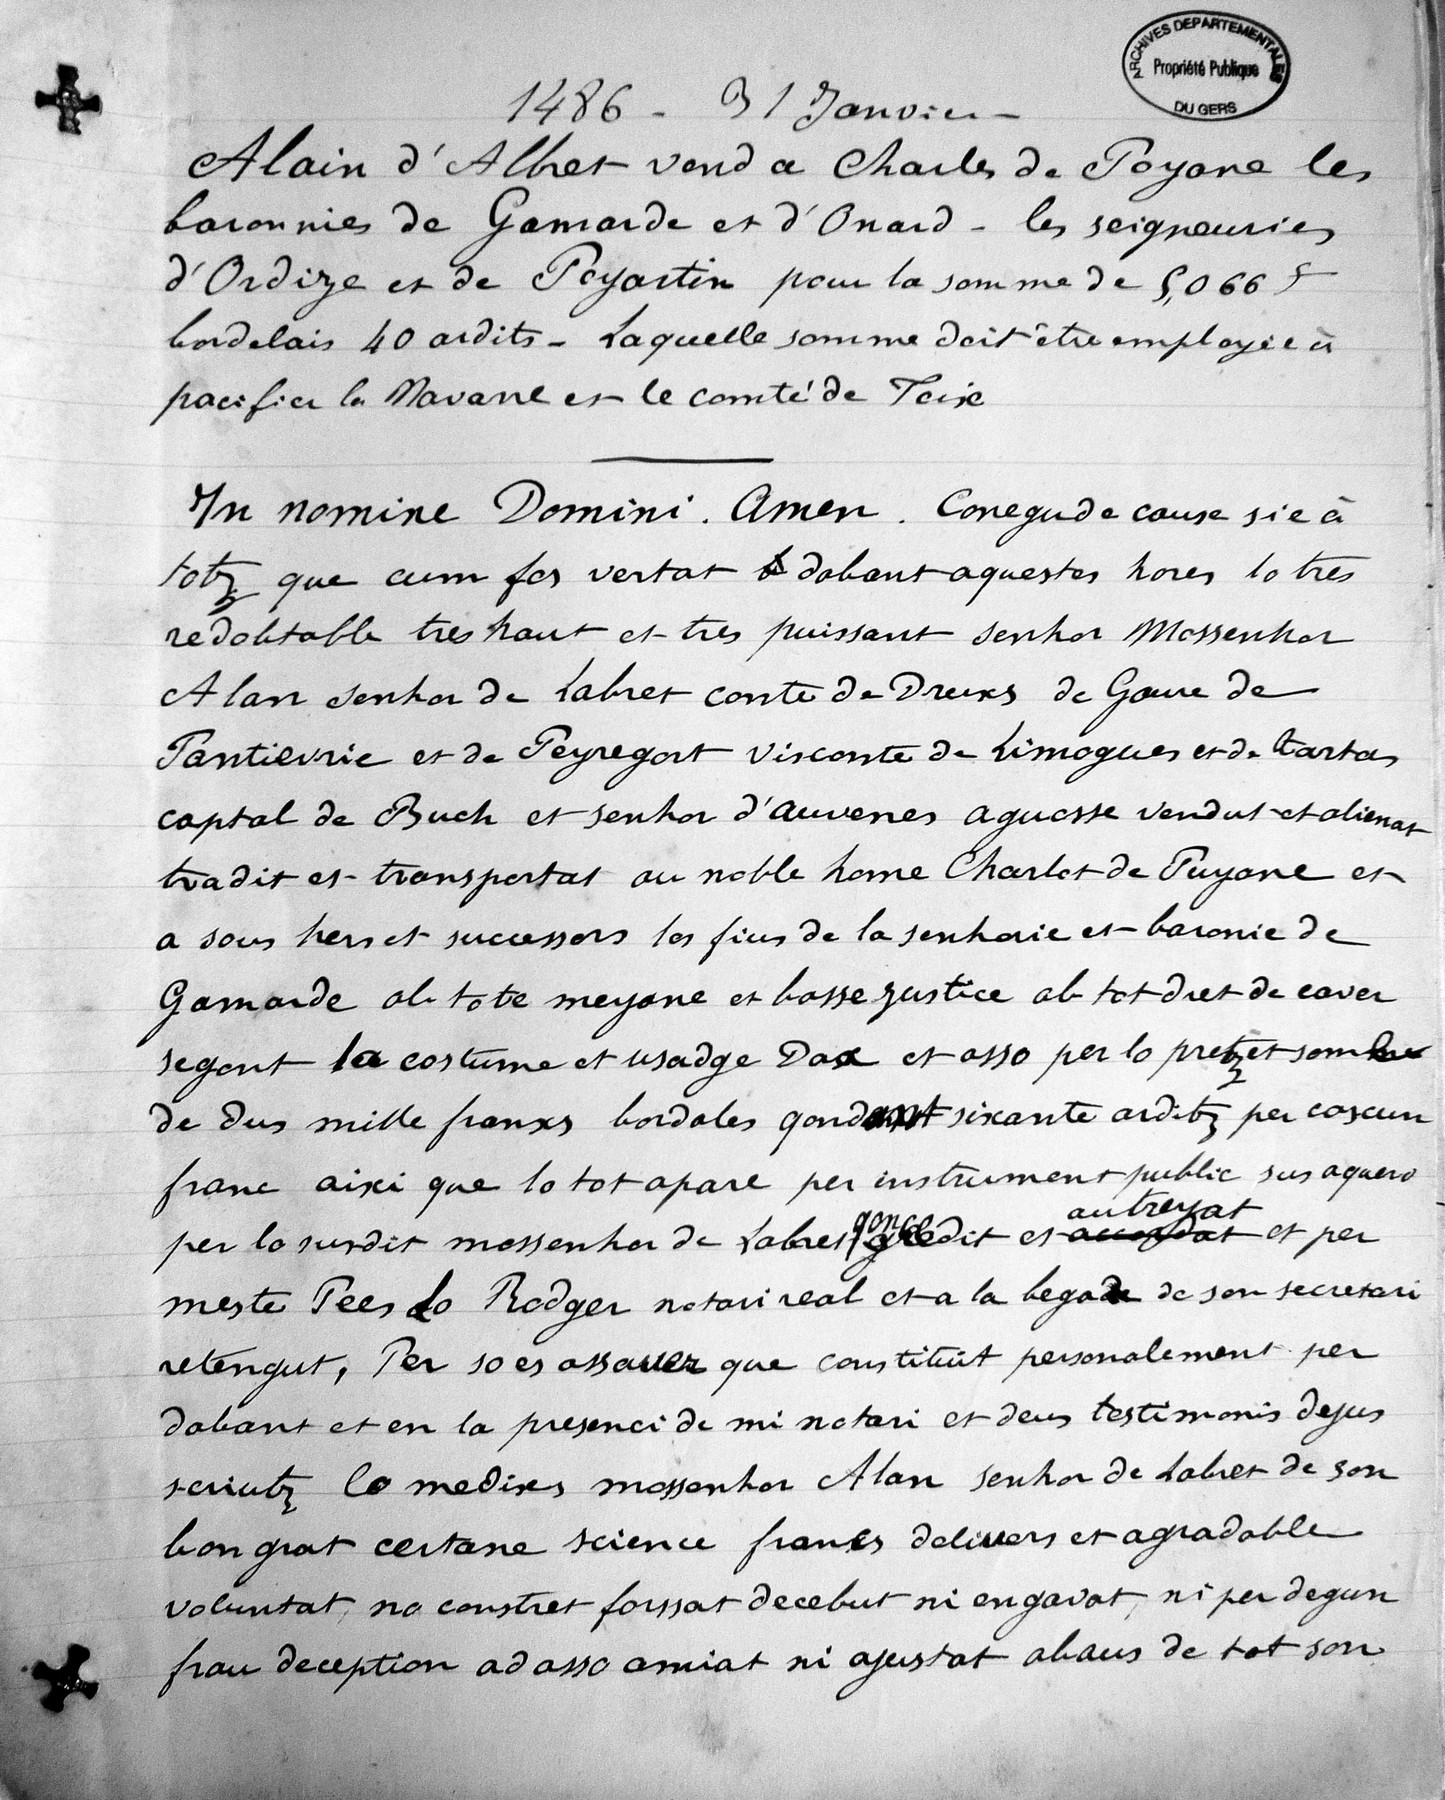 ARCHIVES DEPARTEMENTALES
Propriété Publique
DU GERS
1486 - 31 Janvier -
Alain d'Albret vend a Charles de Poyane les
baronnies de Gamarde et d'Onard - les seigneuries
d'Ordize et de Poyartin pour la somme de 5,066 f
bordelais 40 ardits - Laquelle somme doit être employée à
pacifier la Navarre et le comté de Foix
In nomine Domini. Amen. Conegude cause sie à
totz que cum fos vertat dabant aquestes hores lo tres
redobtable tres haut et tres puissant senhor Mossenhor
Alan senhor de Labret conte de Dreux de Gaure de
Pantievrie et de Peyregort visconte de Limogues et de Tartas
captal de Buch et senhor d'Auvenes aguosse vendut et alienat
tradit et transportat au noble home Charlot de Puyane et
a sous hers et successors los fius de la senhorie et baronie de
Gamarde ab tote meyane et basse justice ab tot dret de caver
segont la costume et usadge Dax et asso per lo pretz et somme
de dus mille franxs bordales sixante arditz per cascun
franc aixi que lo tot apare per instrument public sus aquero
autreyat
per lo susdit mossenhor de Labret et accordat et per
meste Pees Lo Rodger notari real et a la begade de son secretari
retengut, Per so es assauer que constituit personalement per
dabant et en la presenci de mi notari et deus testimonis dejus
scriutz lo medixs mossenhor Alan senhor de Labret de son
bon grat certane science franxs delivers et agradable
voluntat, no constret forssat decebut ni enganat, ni per degun
frau deception ad asso amiat ni ajustat abans de tot son